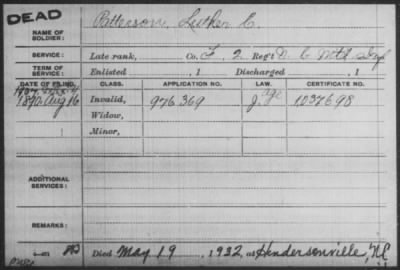 DEAD
NAME OF SOLDIER:
Patterson, Luther C.
SERVICE:
Late rank, Co. F, 2 Reg't N. C. Mtd Inf
TERM OF SERVICE:
Enlisted , 1 Discharged , 1
DATE OF FILING. CLASS. APPLICATION NO. LAW. CERTIFICATE NO.
1907
1890 Aug 16 Invalid, 976 369 J. age 1037698
Widow,
Minor,
ADDITIONAL SERVICES:
REMARKS:
Died May 19 , 1932, at Hendersonville, N.C.